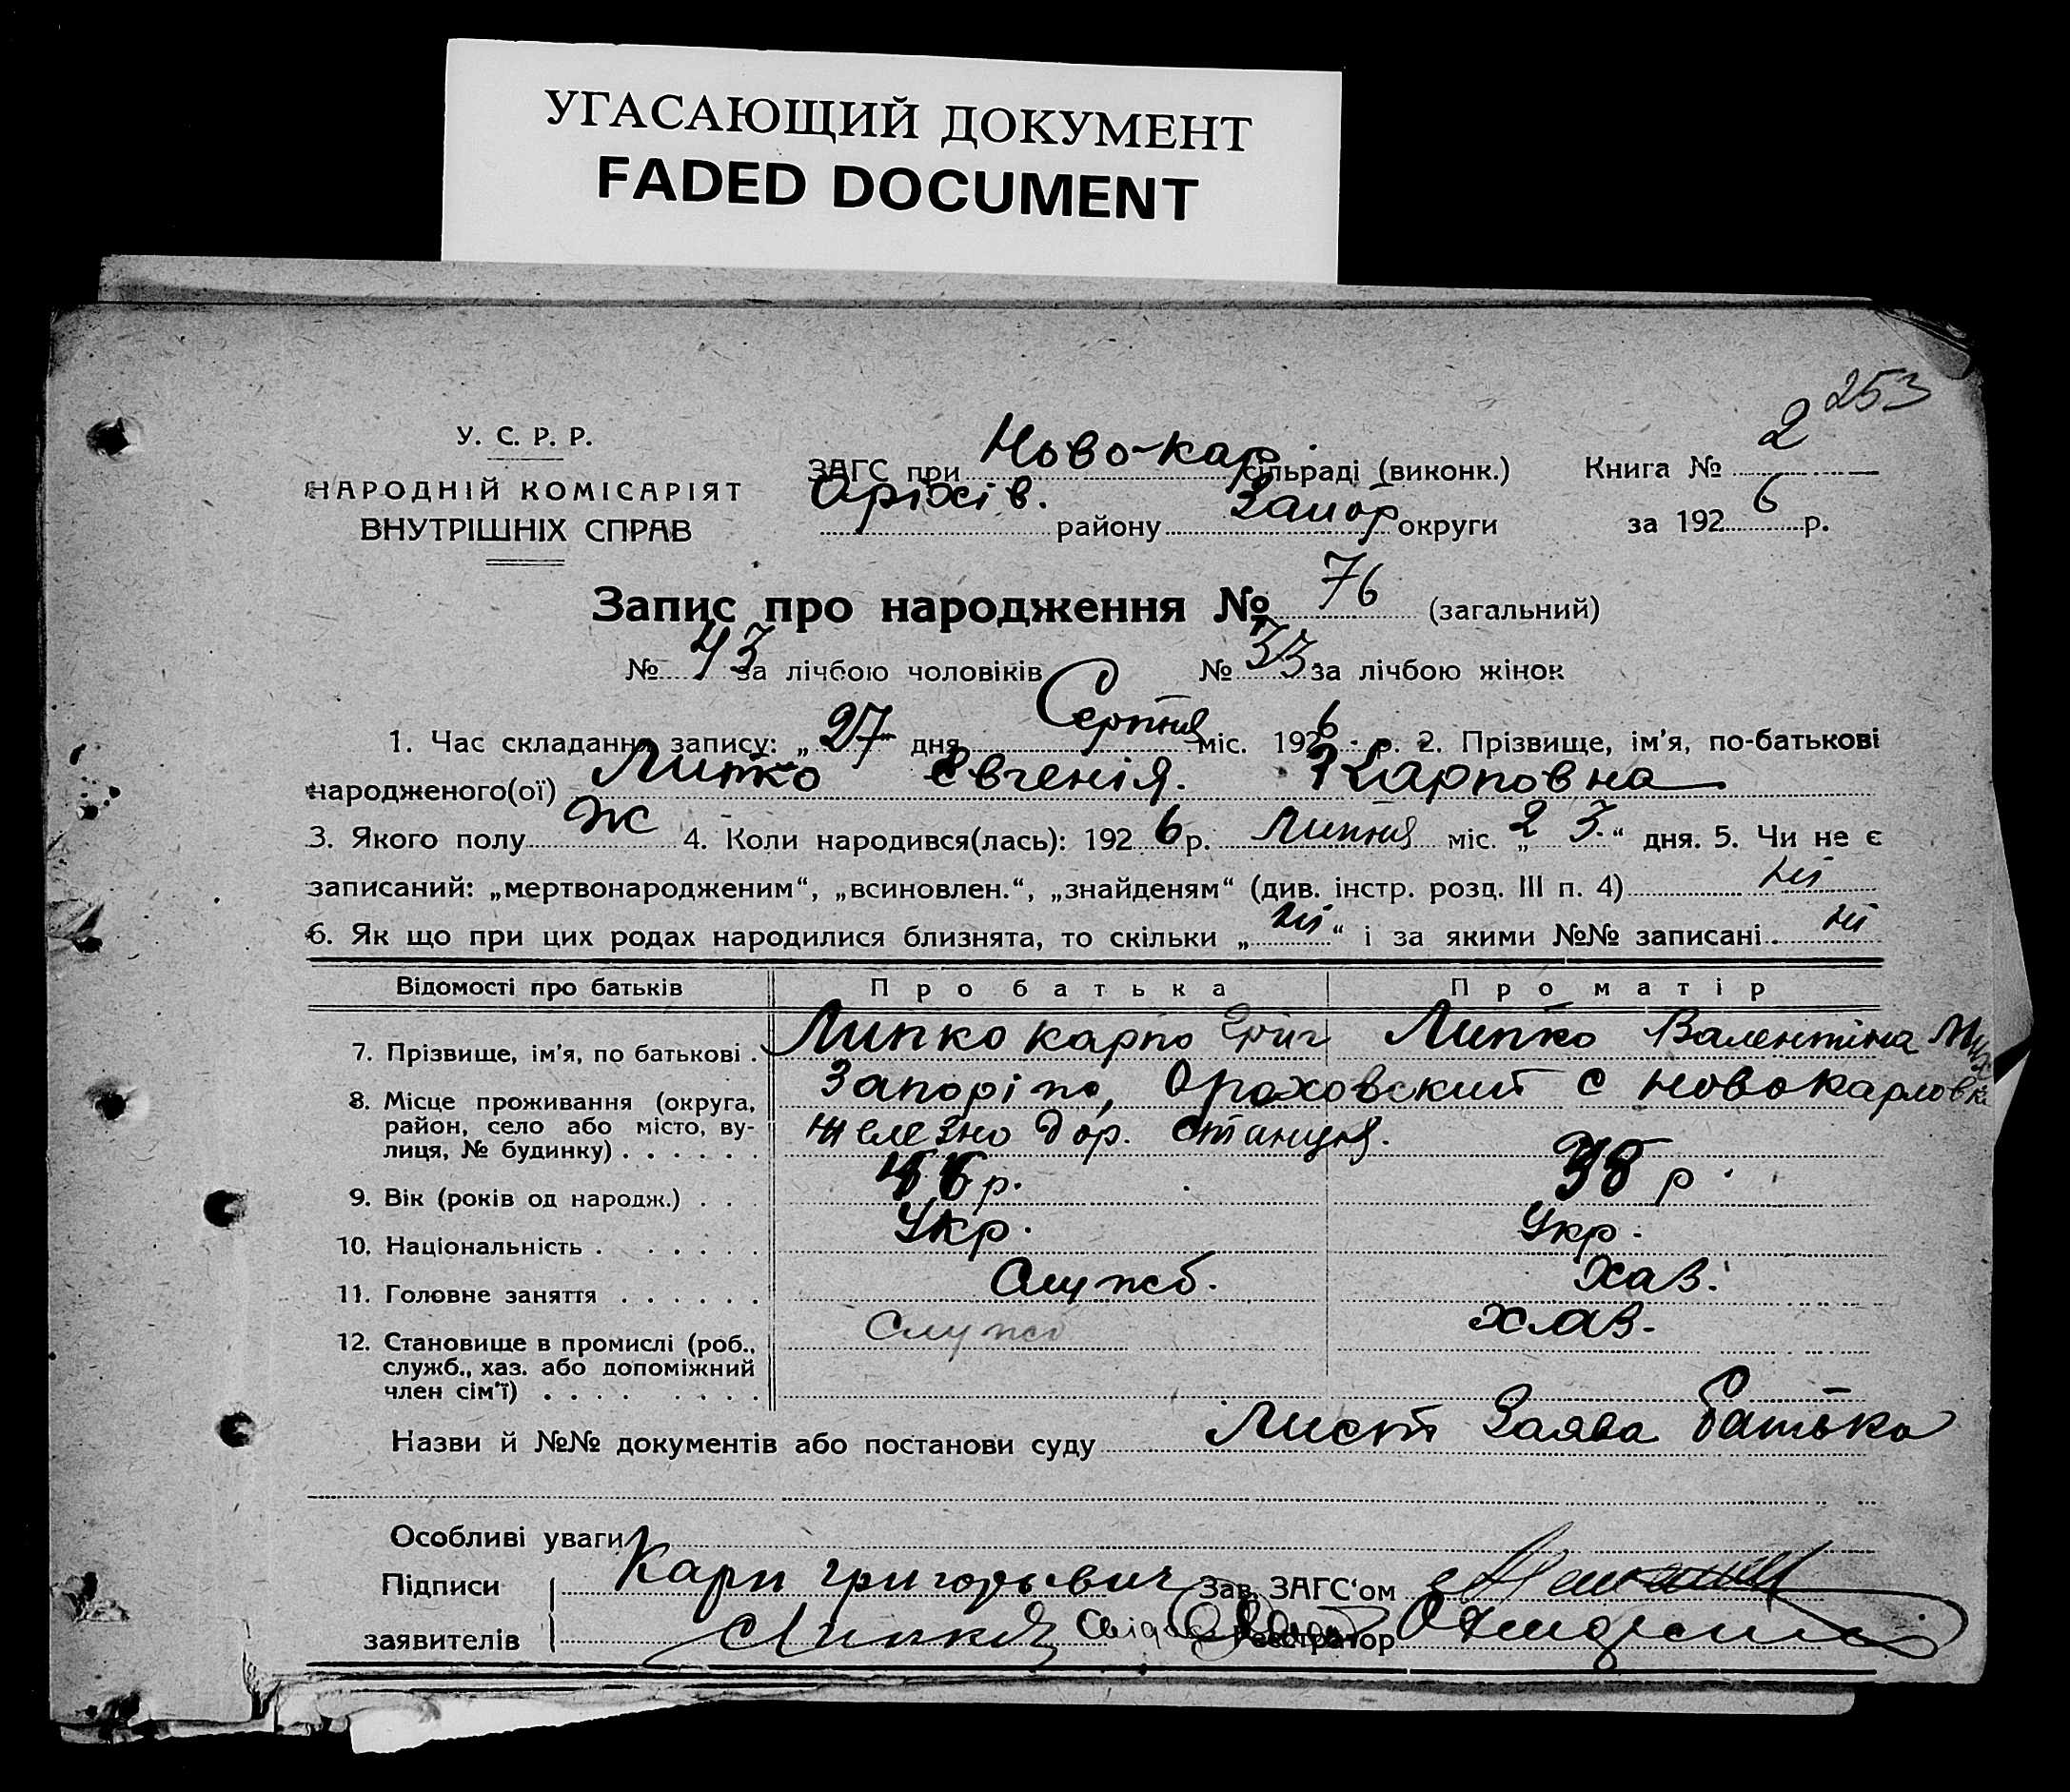 УГАСАЮЩИЙ ДОКУМЕНТ
FADED DOCUMENT
253
У. С. Р. Р.
НАРОДНІЙ КОМІСАРІЯТ
ВНУТРІШНІХ СПРАВ
ЗАГС при Ново-кар. сільраді (виконк.) Книга № 2
Оріхів. району Запор округи за 1926 р.
Запис про народження № 76 (загальний)
№ 43 за лічбою чоловіків № 33 за лічбою жінок
1. Час складання запису: „27 дня Серпня міс. 1926 р. 2. Прізвище, ім'я, по-батькові
народженого(ої) Липко Євгенія. Карповна
3. Якого полу Ж 4. Коли народився(лась): 1926 р. Липня міс. „23.“ дня. 5. Чи не є
записаний: „мертвонародженим“, „всиновлен.“, „знайденям“ (див. інстр. розд. III п. 4) ні
6. Як що при цих родах народилися близнята, то скільки „ні“ і за якими №№ записані. ні
Відомості про батьків Про батька Про матір
7. Прізвище, ім'я, по батькові . Липко Карпо Григ Липко Валентіна
8. Місце проживання (округа, район, село або місто, вулиця, № будинку) . . . . . . Запоріж, Ороховский с Новокарловка
железно дор. станция.
9. Вік (років од народж.) . . р. 38 р.
10. Національність . . . . . . Укр. Укр.
11. Головне заняття . . . . . . Служб. Хаз.
12. Становище в промислі (роб., служб., хаз. або допоміжний член сім'ї) . . . . . . . . Служб Хаз.
Назви й №№ документів або постанови суду Лист Заява батька
Особливі уваги
Підписи Карп Григорьевич Зав. ЗАГС'ом
заявителів Липко Реєстратор